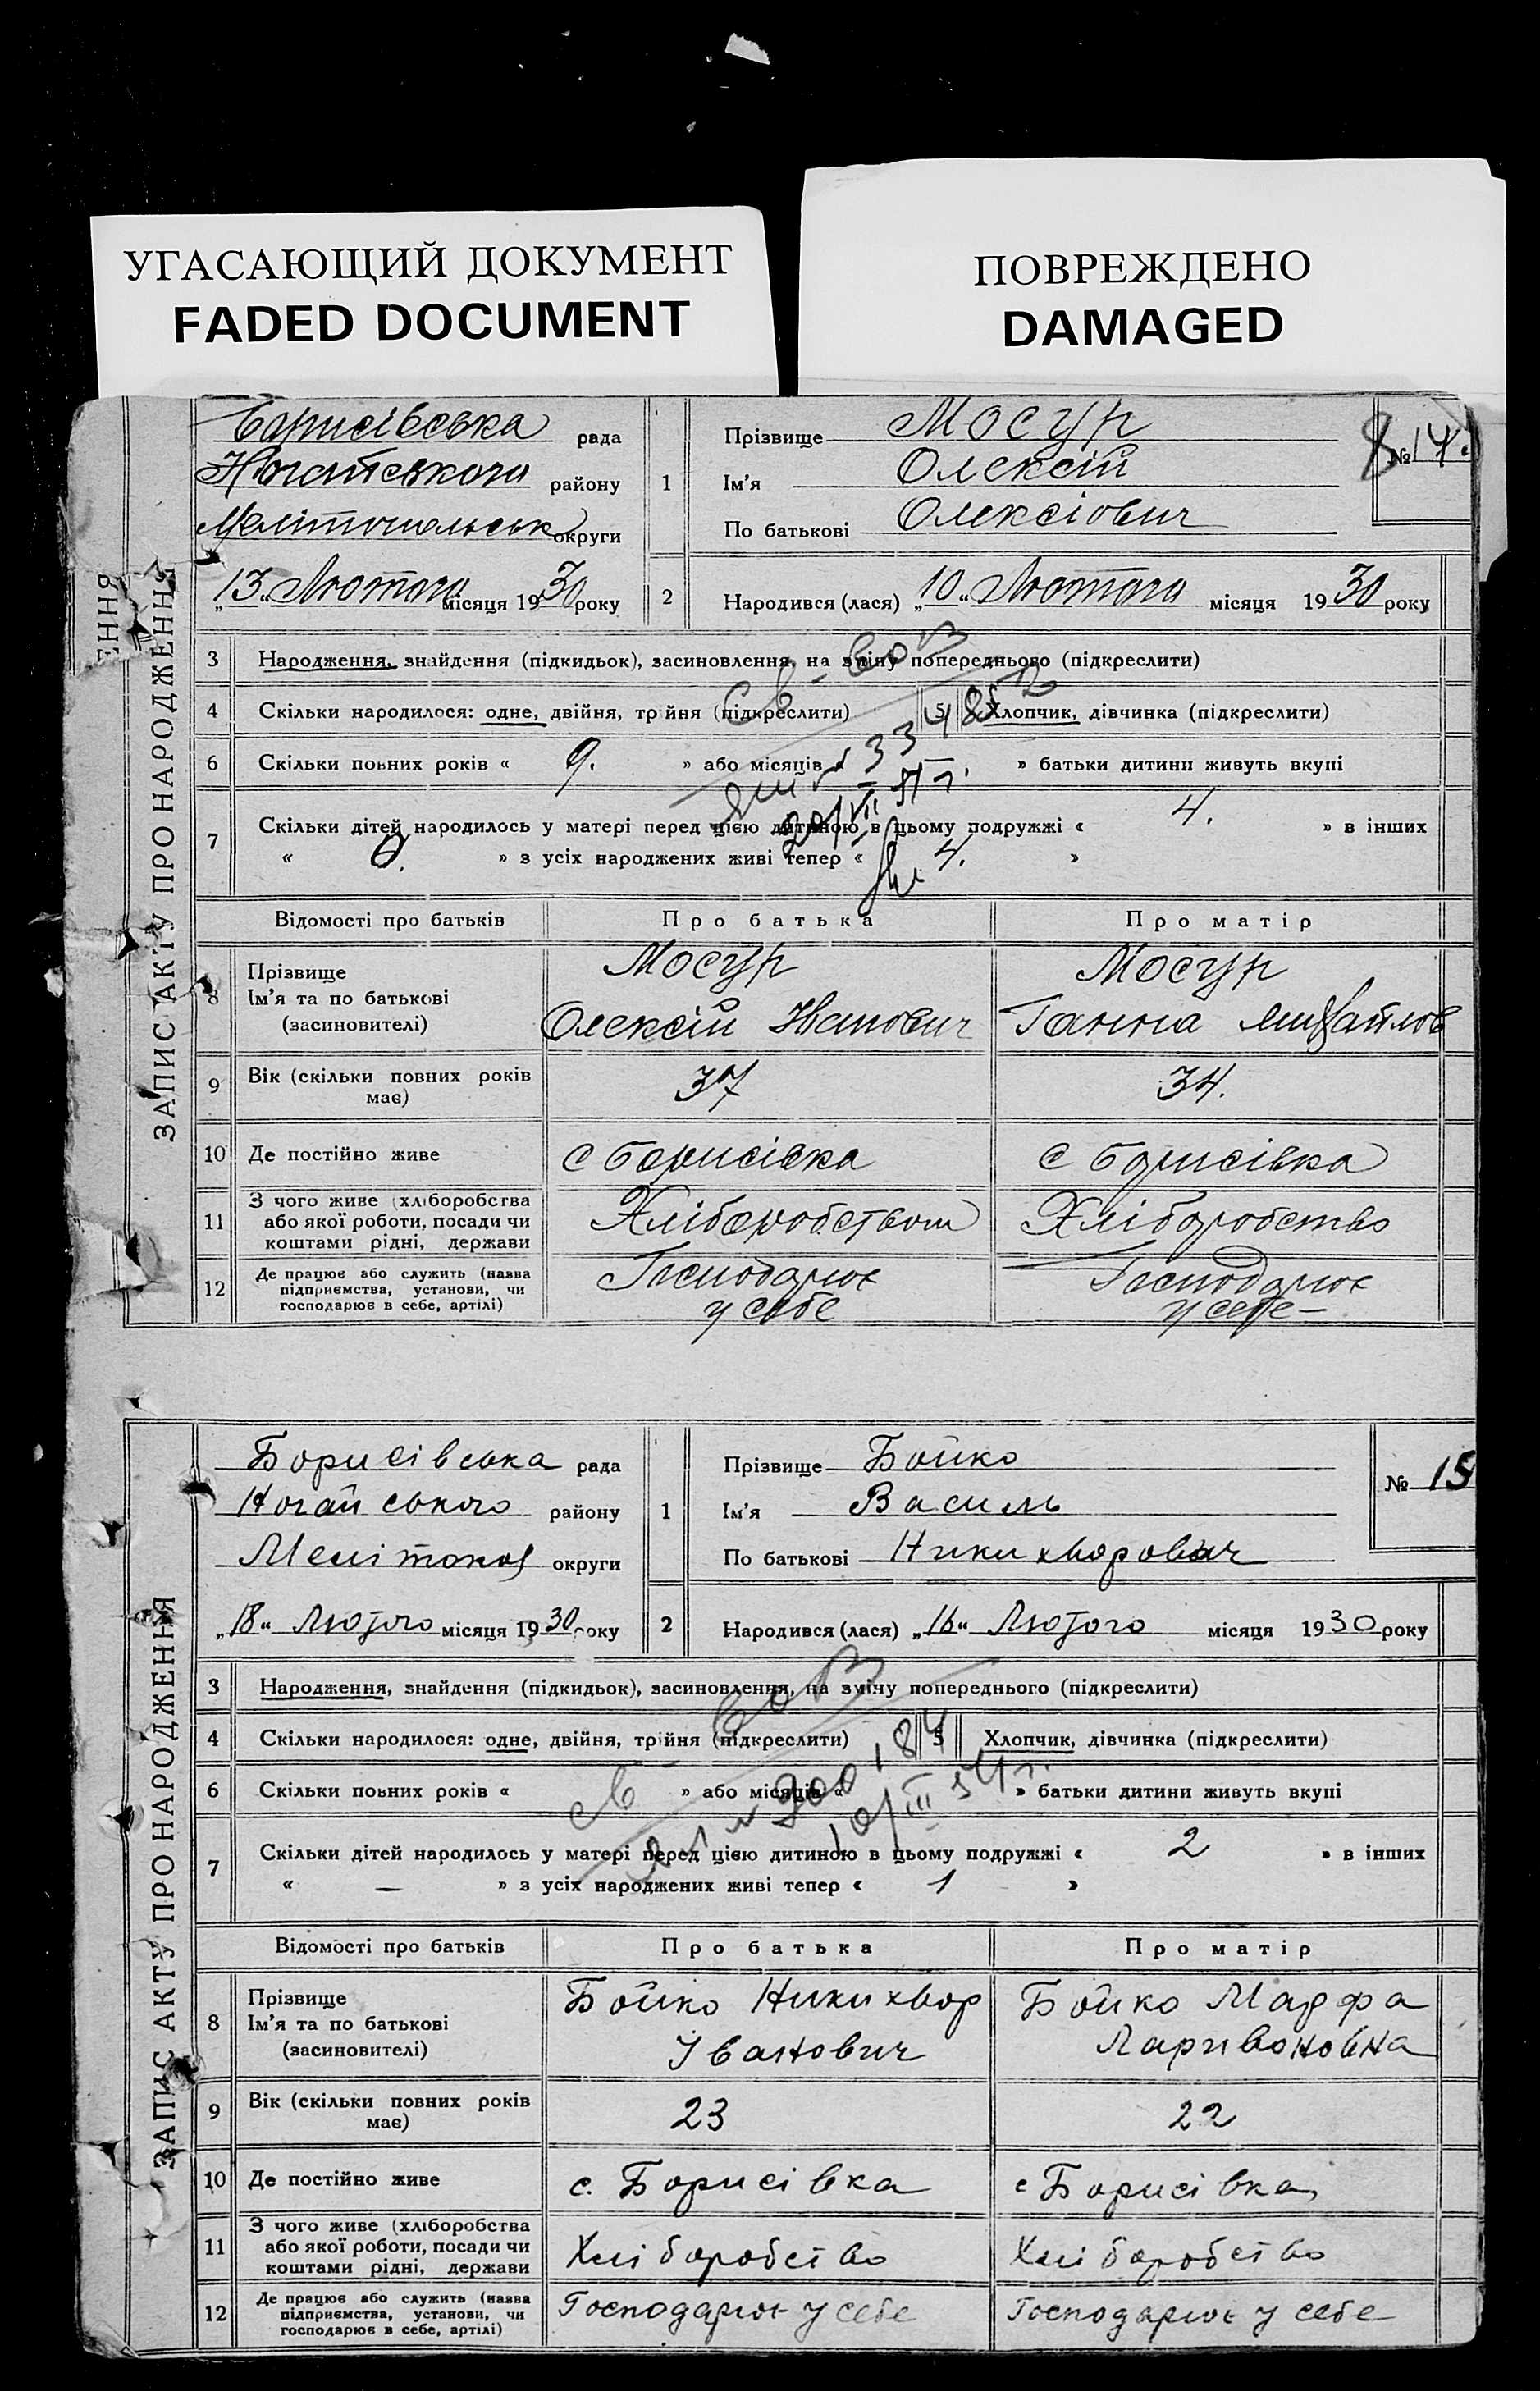 УГАСАЮЩИЙ ДОКУМЕНТ
FADED DOCUMENT
ПОВРЕЖДЕНО
DAMAGED
ЕННЯ
ЗАПИС АКТУ ПРО НАРОДЖЕННЯ
Борисівська рада
Ногайського району
Мелітопольськ округи
„13“ Лютого місяця 1930 року
1
Прізвище Мосур
Ім'я Олексій
По батькові Олексіович
№ 14.
2 Народився (лася) „10“ Лютого місяця 1930 року
3 Народження, знайдення (підкидьок), засиновлення, на зміну попереднього (підкреслити)
4 Скільки народилося: одне, двійня, трійня (підкреслити) 5 Хлопчик, дівчинка (підкреслити)
6 Скільки повних років « 9. » або місяців « » батьки дитини живуть вкупі
7 Скільки дітей народилось у матері перед цією дитиною в цьому подружжі « 4. » в інших
« 0. » з усіх народжених живі тепер « 4. »
Св-во
Відомості про батьків Про батька Про матір
8 Прізвище Мосур Мосур
Ім'я та по батькові Олексій Иванович Ганна Михайлов
(засиновителі)
9 Вік (скільки повних років має) 37 34.
10 Де постійно живе с Борисівка с Борисівка
11 З чого живе (хліборобства
або якої роботи, посади чи Хліборобством Хліборобство
коштами рідні, держави
12 Де працює або служить (назва Господарює Господарює
підприємства, установи, чи у себе у себе –
господарює в себе, артілі)
ЗАПИС АКТУ ПРО НАРОДЖЕННЯ
Борисівська рада
Ногайського району
Мелітопол округи
„18“ Лютого місяця 1930 року
1
Прізвище Бойко
Ім'я Василь
По батькові Никихворович
№ 15
2 Народився (лася) „16“ Лютого місяця 1930 року
3 Народження, знайдення (підкидьок), засиновлення, на зміну попереднього (підкреслити)
4 Скільки народилося: одне, двійня, трійня (підкреслити) 5 Хлопчик, дівчинка (підкреслити)
6 Скільки повних років « » або місяців « » батьки дитини живуть вкупі
7 Скільки дітей народилось у матері перед цією дитиною в цьому подружжі « 2 » в інших
« — » з усіх народжених живі тепер « 1 »
Св-во
Відомості про батьків Про батька Про матір
8 Прізвище Бойко Никихвор Бойко Марфа
Ім'я та по батькові Іванович Ларивоновна
(засиновителі)
9 Вік (скільки повних років має) 23 22
10 Де постійно живе с. Борисівка с Борисівка
11 З чого живе (хліборобства
або якої роботи, посади чи Хліборобство Хліборобство
коштами рідні, держави
12 Де працює або служить (назва
підприємства, установи, чи Господарює у себе Господарює у себе
господарює в себе, артілі)